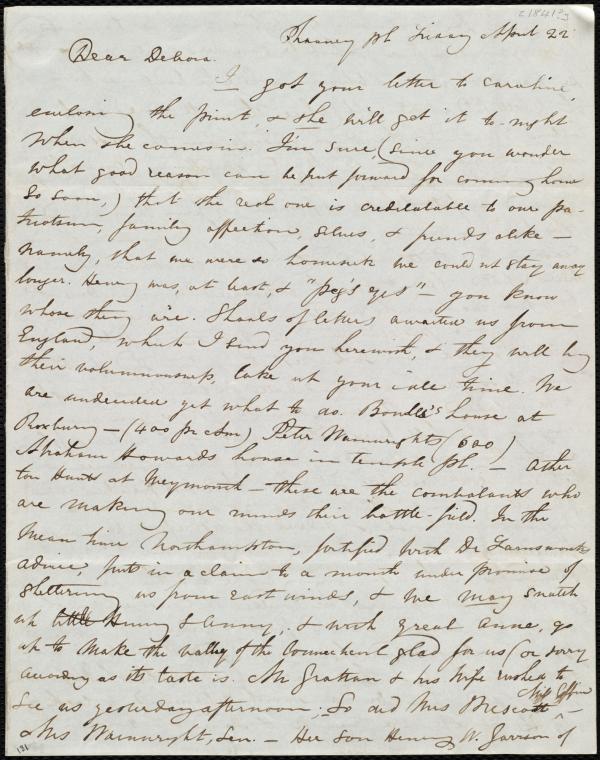 [1841?]
Chauncy pl. Friday April 22
Dear Debora.
I got your letter to Caroline,
enclosing the print, & she will get it to-night
when she comes in. I'm sure, (since you wonder
what good reason can be put forward for coming home
so soon,) that the real one is creditable to our pa-
triotism, family affection, selves, & friends alike —
namely, that we were so homesick we could n't stay away
longer. Henry was, at least, & "peg's eyes" — you know
whose they are. Shoals of letters awaited us from
England, which I send you herewith, & they will by
their voluminousness, take up your idle time. We
are undecided yet what to do. House at
Roxbury — (400 pr ann) Peter Wainwrights (600)
Abraham Howards house in temple pl. — Ather
ton Hunts at Weymouth — these are the combatants who
are making our minds their battle-field. In the
mean time Northampton, fortified with Dr Farnsworth's
advice, puts in a claim to a month under promise of
sheltering us from east winds, & we may snatch
up little Henry & Anny, & with great Anne, go
up to make the valley of the Connecticut glad for us (or sorry
according as its taste is. Mr Grattan & his wife rushed to
see us yesterday afternoon; So did Mrs Prescott, Miss
& Mrs Wainwright, Sen. — Her son Henry W. Garrison of
131